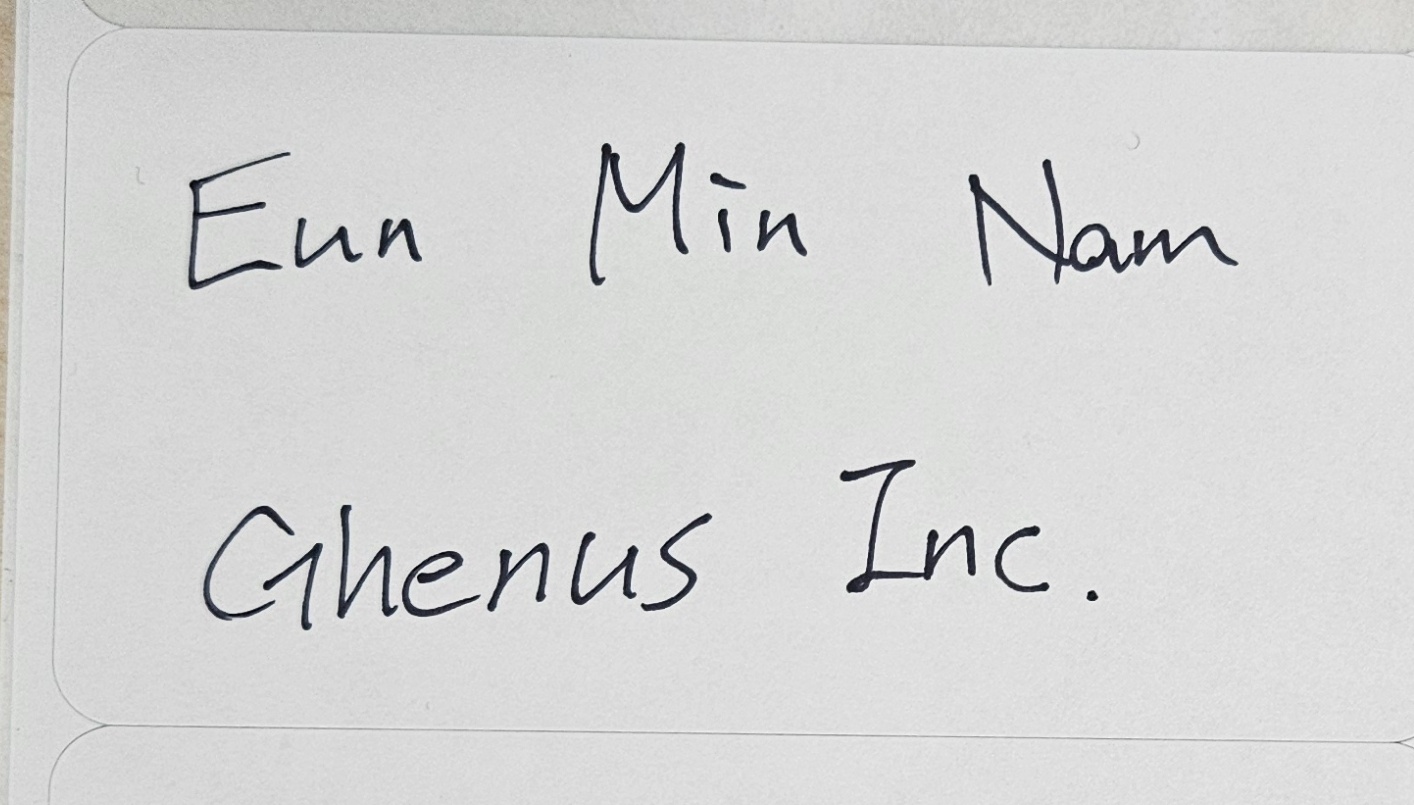 Eun Min Nam
Ghenus Inc.